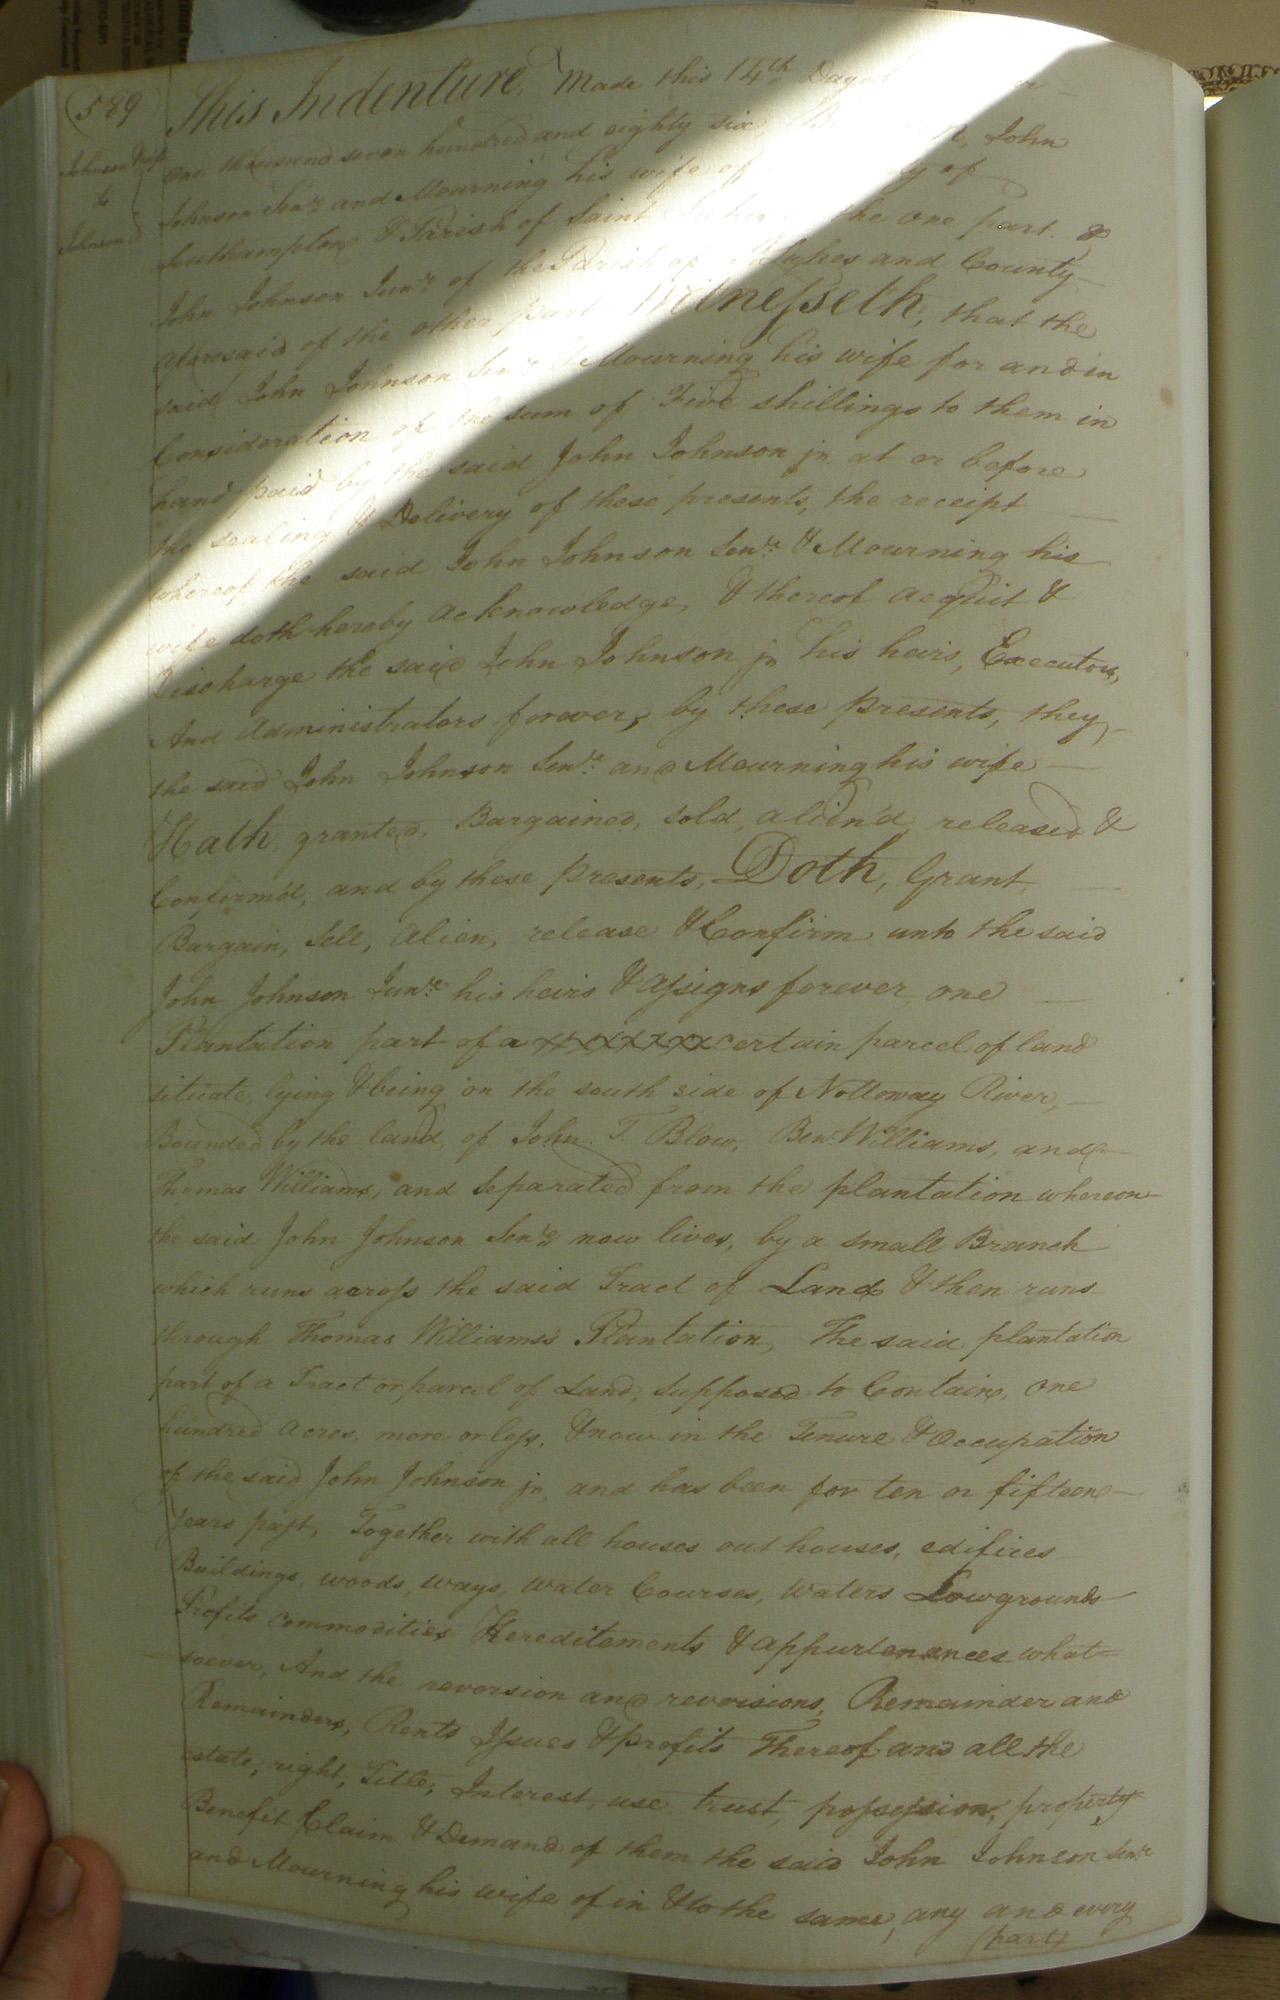 589
This Indenture, Made this 14th Day of
Johnson & wife
to
Johnson
One thousand seven hundred and eighty six, John
Johnson Senr. and Mourning his wife of
Southampton & Parish of Saint the one part &
John Johnson Junr. of the Parish of St Lukes and County
aforesaid of the other part Witnesseth, that the
said John Johnson Senr. & Mourning his wife for and in
Consideration of the sum of Five shillings to them in
hand paid by the said John Johnson jr. at or before
the sealing & Delivery of these presents, the receipt
whereof the said John Johnson Senr. & Mourning his
wife doth hereby acknowledge, & thereof acquit &
Discharge the said John Johnson jr his heirs, Executors,
And administrators forever, by these presents, they
the said John Johnson Senr. and Mourning his wife
Hath, granted, Bargained, sold, alien'd, released &
Confirm'd, and by these presents, Doth, Grant,
Bargain, Sell, Alien, release & Confirm unto the said
John Johnson Junr. his heirs & assigns forever, one
Plantation part of a certain parcel of land
situate, lying & being on the south side of Nottoway River,
Bounded by the land, of John. T. Blow, Ben. Williams, and
Thomas Williams, and separated from the plantation whereon
the said John Johnson Senr. now lives, by a small Branch
which runs across the said Tract of Land & then runs
through Thomas Williams's Plantation, The said plantation
part of a Tract or parcel of Land, supposed to Contain, one
hundred acres, more or less, & now in the Tenure & Occupation
of the said John Johnson jr, and has been for ten or fifteen
years past, Together with all houses out houses, edifices
Buildings, woods, ways, water Courses, waters Lowgrounds
Profits commodities Hereditements & appurtenances what=
soever, And the reversion and reversions, Remainder and
Remainders, Rents Issues & profits Thereof and all the
estate, right, Title, Interest, use trust, possession, property
Benefit Claim & Demand of them the said John Johnson Senr.
and Mourning his wife of in & to the same, any and every
(part)